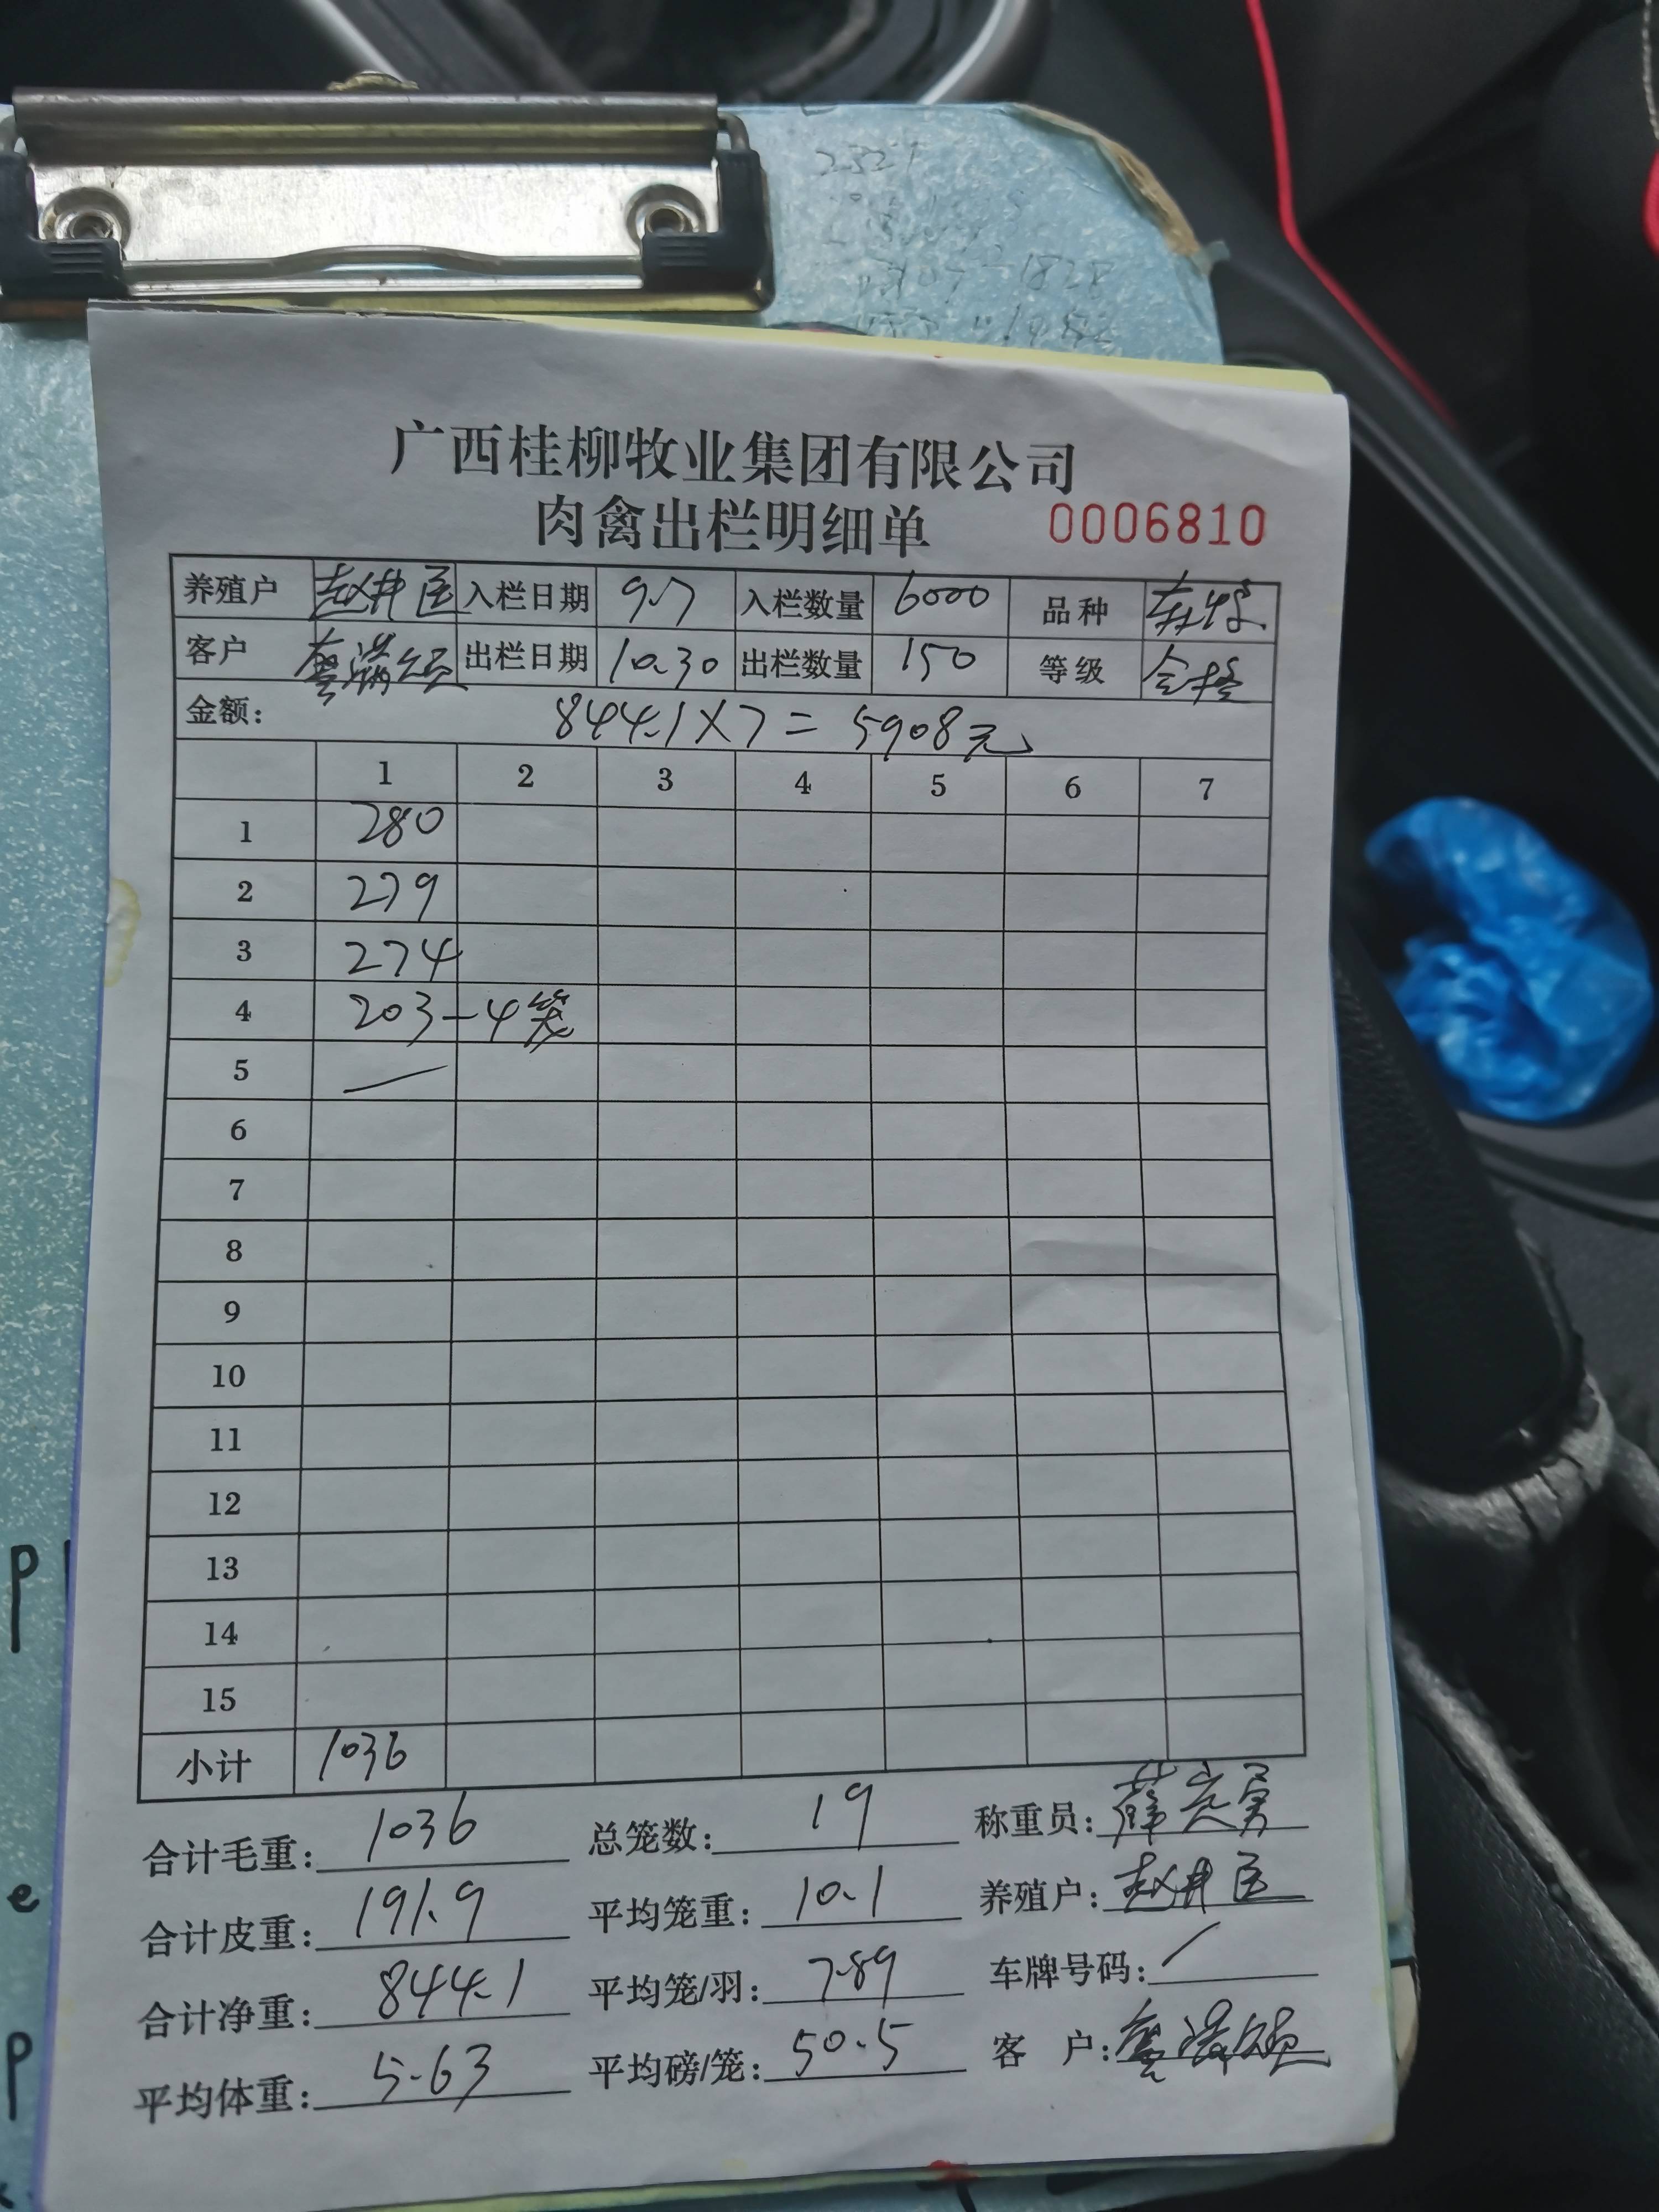 广西桂柳牧业集团有限公司
肉禽出栏明细单 0006810
养殖户 赵井医 入栏日期 9.7 入栏数量 6000 品种
客户 出栏日期 10.30 出栏数量 150 等级 合格
金额: 844.1×7=5908元
1 2 3 4 5 6 7
1 280
2 279
3 274
4 203-4笼
5 —
6
7
8
9
10
11
12
13
14
15
小计 1036
合计毛重: 1036 总笼数: 19 称重员: 薛克勇
合计皮重: 191.9 平均笼重: 10.1 养殖户: 赵井医
合计净重: 844.1 平均笼/羽: 7.89 车牌号码: /
平均体重: 5.63 平均磅/笼: 50.5 客 户: